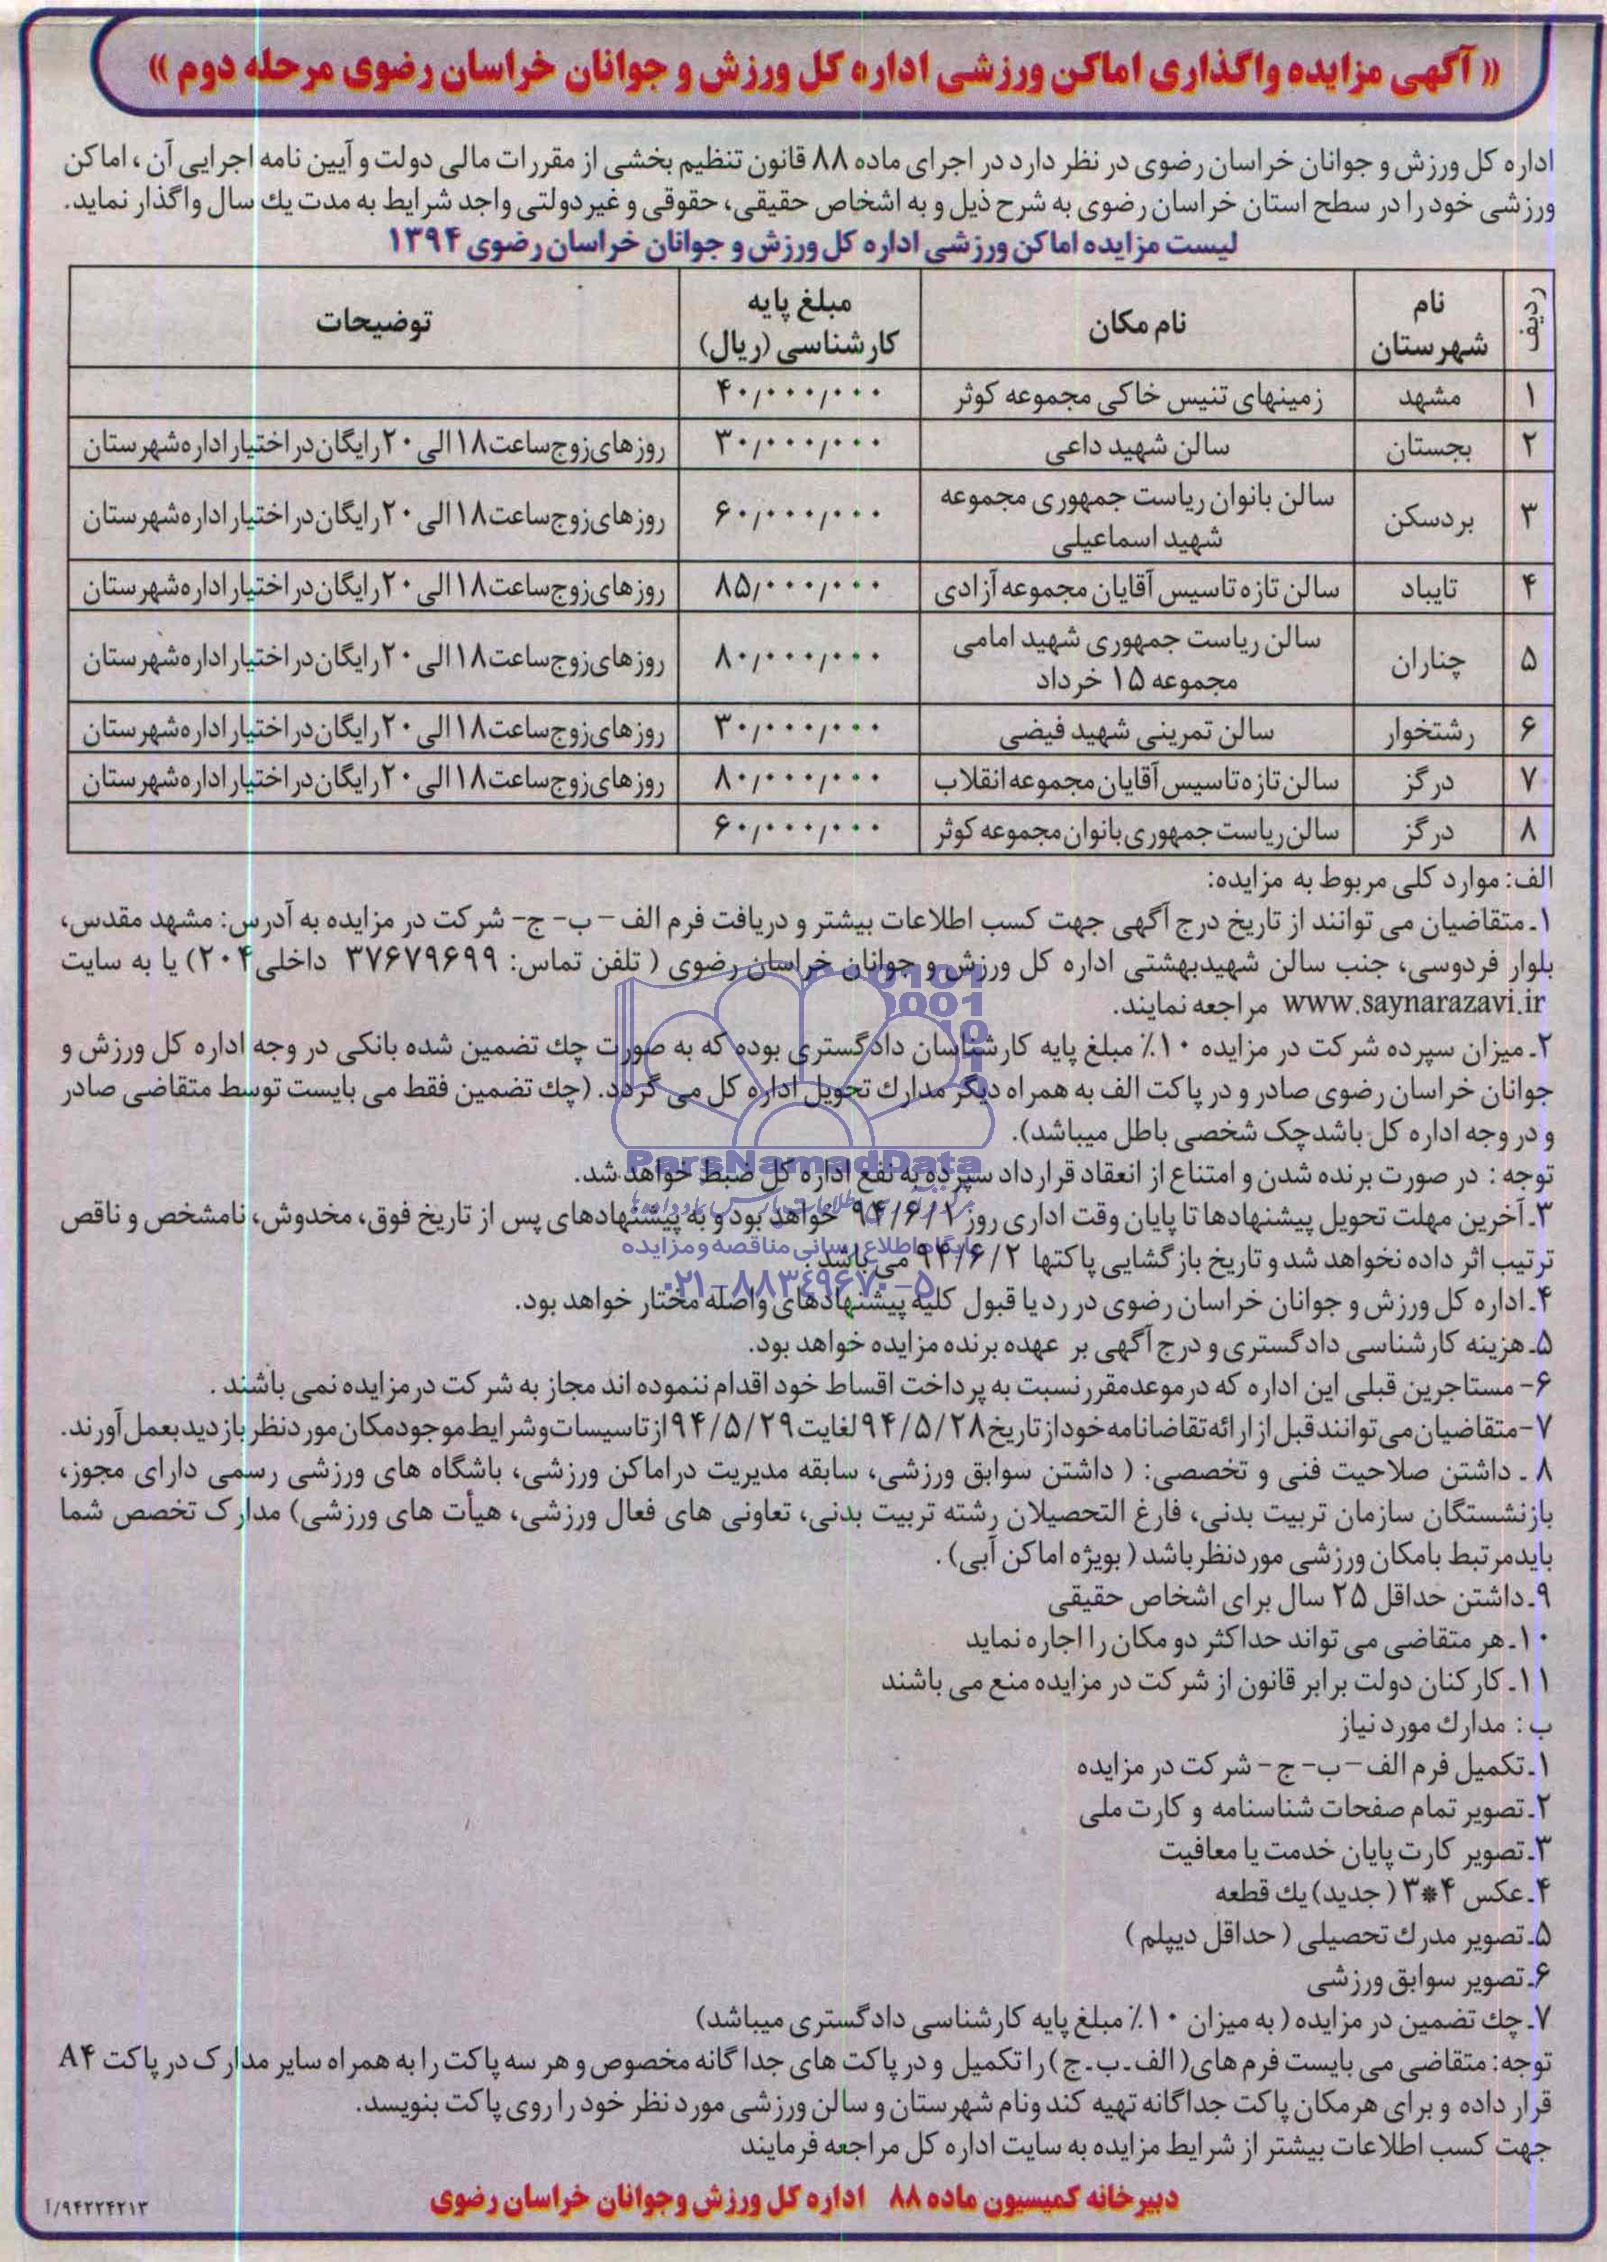 « آگهی مزایده واگذاری اماکن ورزشی اداره کل ورزش و جوانان خراسان رضوی مرحله دوم »
اداره کل ورزش و جوانان خراسان رضوی در نظر دارد در اجرای ماده ۸۸ قانون تنظیم بخشی از مقررات مالی دولت و آیین نامه اجرایی آن ، اماکن
ورزشی خود را در سطح استان خراسان رضوی به شرح ذیل و به اشخاص حقیقی، حقوقی و غیر دولتی واجد شرایط به مدت یك سال واگذار نماید.
لیست مزایده اماکن ورزشی اداره کل ورزش و جوانان خراسان رضوی ۱۳۹۴
ردیف | نام شهرستان | نام مکان | مبلغ پایه کارشناسی (ریال) | توضیحات
۱ | مشهد | زمینهای تنیس خاکی مجموعه کوثر | ۴۰/۰۰۰/۰۰۰
۲ | بجستان | سالن شهید داعی | ۳۰/۰۰۰/۰۰۰ | روزهای زوج ساعت ۱۸ الی ۲۰ رایگان در اختیار اداره شهرستان
۳ | بردسکن | سالن بانوان ریاست جمهوری مجموعه شهید اسماعیلی | ۶۰/۰۰۰/۰۰۰ | روزهای زوج ساعت ۱۸ الی ۲۰ رایگان در اختیار اداره شهرستان
۴ | تایباد | سالن تازه تاسیس آقایان مجموعه آزادی | ۸۵/۰۰۰/۰۰۰ | روزهای زوج ساعت ۱۸ الی ۲۰ رایگان در اختیار اداره شهرستان
۵ | چناران | سالن ریاست جمهوری شهید امامی مجموعه ۱۵ خرداد | ۸۰/۰۰۰/۰۰۰ | روزهای زوج ساعت ۱۸ الی ۲۰ رایگان در اختیار اداره شهرستان
۶ | رشتخوار | سالن تمرینی شهید فیضی | ۳۰/۰۰۰/۰۰۰ | روزهای زوج ساعت ۱۸ الی ۲۰ رایگان در اختیار اداره شهرستان
۷ | درگز | سالن تازه تاسیس آقایان مجموعه انقلاب | ۸۰/۰۰۰/۰۰۰ | روزهای زوج ساعت ۱۸ الی ۲۰ رایگان در اختیار اداره شهرستان
۸ | درگز | سالن ریاست جمهوری بانوان مجموعه کوثر | ۶۰/۰۰۰/۰۰۰
الف: موارد کلی مربوط به مزایده:
۱ـ متقاضیان می توانند از تاریخ درج آگهی جهت کسب اطلاعات بیشتر و دریافت فرم الف – ب- ج- شرکت در مزایده به آدرس: مشهد مقدس،
بلوار فردوسی، جنب سالن شهیدبهشتی اداره کل ورزش و جوانان خراسان رضوی ( تلفن تماس: ۳۷۶۷۹۶۹۹ داخلی ۲۰۴) یا به سایت
www.saynarazavi.ir مراجعه نمایند.
۲ـ میزان سپرده شرکت در مزایده ۱۰٪ مبلغ پایه کارشناسان دادگستری بوده که به صورت چك تضمین شده بانکی در وجه اداره کل ورزش و
جوانان خراسان رضوی صادر و در پاکت الف به همراه دیگر مدارك تحویل اداره کل می گردد. (چك تضمین فقط می بایست توسط متقاضی صادر
و در وجه اداره کل باشدچک شخصی باطل میباشد).
توجه : در صورت برنده شدن و امتناع از انعقاد قرارداد سپرده به نفع اداره کل ضبط خواهد شد.
۳ـ آخرین مهلت تحویل پیشنهادها تا پایان وقت اداری روز ۹۴/۶/۱ خواهد بود و به پیشنهادهای پس از تاریخ فوق، مخدوش، نامشخص و ناقص
ترتیب اثر داده نخواهد شد و تاریخ بازگشایی پاکتها ۹۴/۶/۲ می باشد .
۴ـ اداره کل ورزش و جوانان خراسان رضوی در رد یا قبول کلیه پیشنهادهای واصله مختار خواهد بود.
۵ـ هزینه کارشناسی دادگستری و درج آگهی بر عهده برنده مزایده خواهد بود.
۶- مستاجرین قبلی این اداره که درموعدمقررنسبت به پرداخت اقساط خود اقدام ننموده اند مجاز به شرکت درمزایده نمی باشند .
۷-متقاضیان می توانند قبل از ارائه تقاضانامه خود از تاریخ ۹۴/۵/۲۸ لغایت ۹۴/۵/۲۹ از تاسیسات و شرایط موجود مکان مورد نظر بازدید بعمل آورند.
۸ ـ داشتن صلاحیت فنی و تخصصی: ( داشتن سوابق ورزشی، سابقه مدیریت دراماکن ورزشی، باشگاه های ورزشی رسمی دارای مجوز،
بازنشستگان سازمان تربیت بدنی، فارغ التحصیلان رشته تربیت بدنی، تعاونی های فعال ورزشی، هیأت های ورزشی) مدارک تخصص شما
بایدمرتبط بامکان ورزشی موردنظرباشد ( بویژه اماکن آبی) .
۹ـ داشتن حداقل ۲۵ سال برای اشخاص حقیقی
۱۰ـ هر متقاضی می تواند حداکثر دو مکان را اجاره نماید
۱۱ـ کارکنان دولت برابر قانون از شرکت در مزایده منع می باشند
ب : مدارك مورد نیاز
۱ـ تکمیل فرم الف – ب- ج - شرکت در مزایده
۲ـ تصویر تمام صفحات شناسنامه و کارت ملی
۳ـ تصویر کارت پایان خدمت یا معافیت
۴ـ عکس ۴*۳ ( جدید) یك قطعه
۵ـ تصویر مدرك تحصیلی ( حداقل دیپلم )
۶ـ تصویر سوابق ورزشی
۷ـ چك تضمین در مزایده ( به میزان ۱۰٪ مبلغ پایه کارشناسی دادگستری میباشد)
توجه: متقاضی می بایست فرم های( الف ـ ب ـ ج ) را تکمیل و در پاکت های جداگانه مخصوص و هر سه پاکت را به همراه سایر مدارک در پاکت A۴
قرار داده و برای هرمکان پاکت جداگانه تهیه کند ونام شهرستان و سالن ورزشی مورد نظر خود را روی پاکت بنویسد.
جهت کسب اطلاعات بیشتر از شرایط مزایده به سایت اداره کل مراجعه فرمایند
دبیرخانه کمیسیون ماده ۸۸ اداره کل ورزش وجوانان خراسان رضوی
۹۴۲۲۴۲۱۳/آ
ParsNamadData
پایگاه اطلاع رسانی مناقصه و مزایده
۰۲۱-۸۸۳۴۹۶۷۰-۵